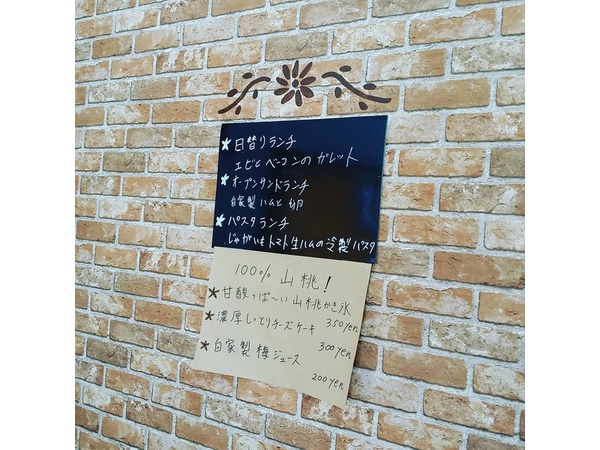 ★日替りランチ
エビとベーコンのガレット
★オープンサンドランチ
自家製ハムと卵
★パスタランチ
じゃがいもトマト生ハムの冷製パスタ
100%山桃!
★甘酸っぱ〜い山桃かき氷
350yen
★濃厚しっとりチーズケーキ
300yen
★自家製梅ジュース
200yen